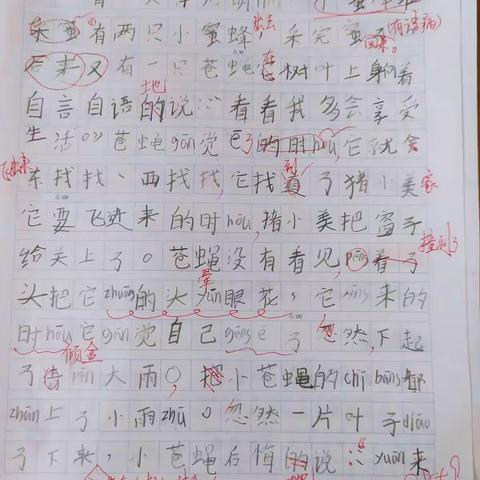 采蜜有两只小蜜蜂出去采完蜜回来。(有语病)
后来又有一只苍蝇在树叶上躺着
自言自语地的说:"看看我多会享受
生活。"苍蝇gǎn觉è了的时hou,它就会
东找找、西找找,它找到了猪小美家
它要飞进来的时hou,猪小美把窗子
给关上了。苍蝇没有看见,pèng着了撞到了
头把它zhuàng的头yūn晕眼花,它xǐng来的
时hou它gǎn觉自己gèng è了忽然,下起
了倾盆pén大雨。把小苍蝇的chì bǎng都
zhān上了小雨zhū。忽然一片叶子diào
了下来,小苍蝇后悔的说:"yuán来